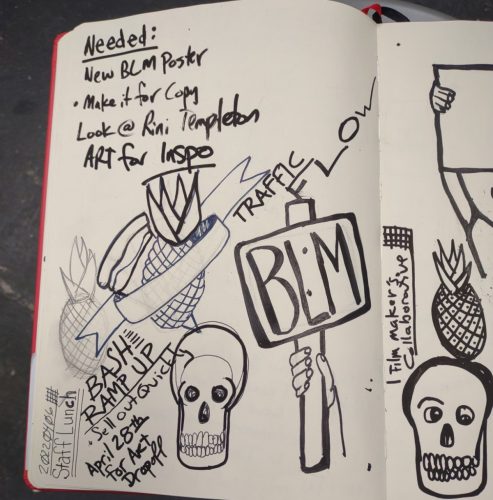 Needed:
New BLM Poster
• Make it for Copy
Look @ Rini Templeton
ART for Inspo
TRAFFIC
FLOW
BLM
BASH
RAMP UP
• Sell Out Quick
April 28th
for Art
Dropoff
20220406
Staff Lunch
1 Film maker's
Collaborative